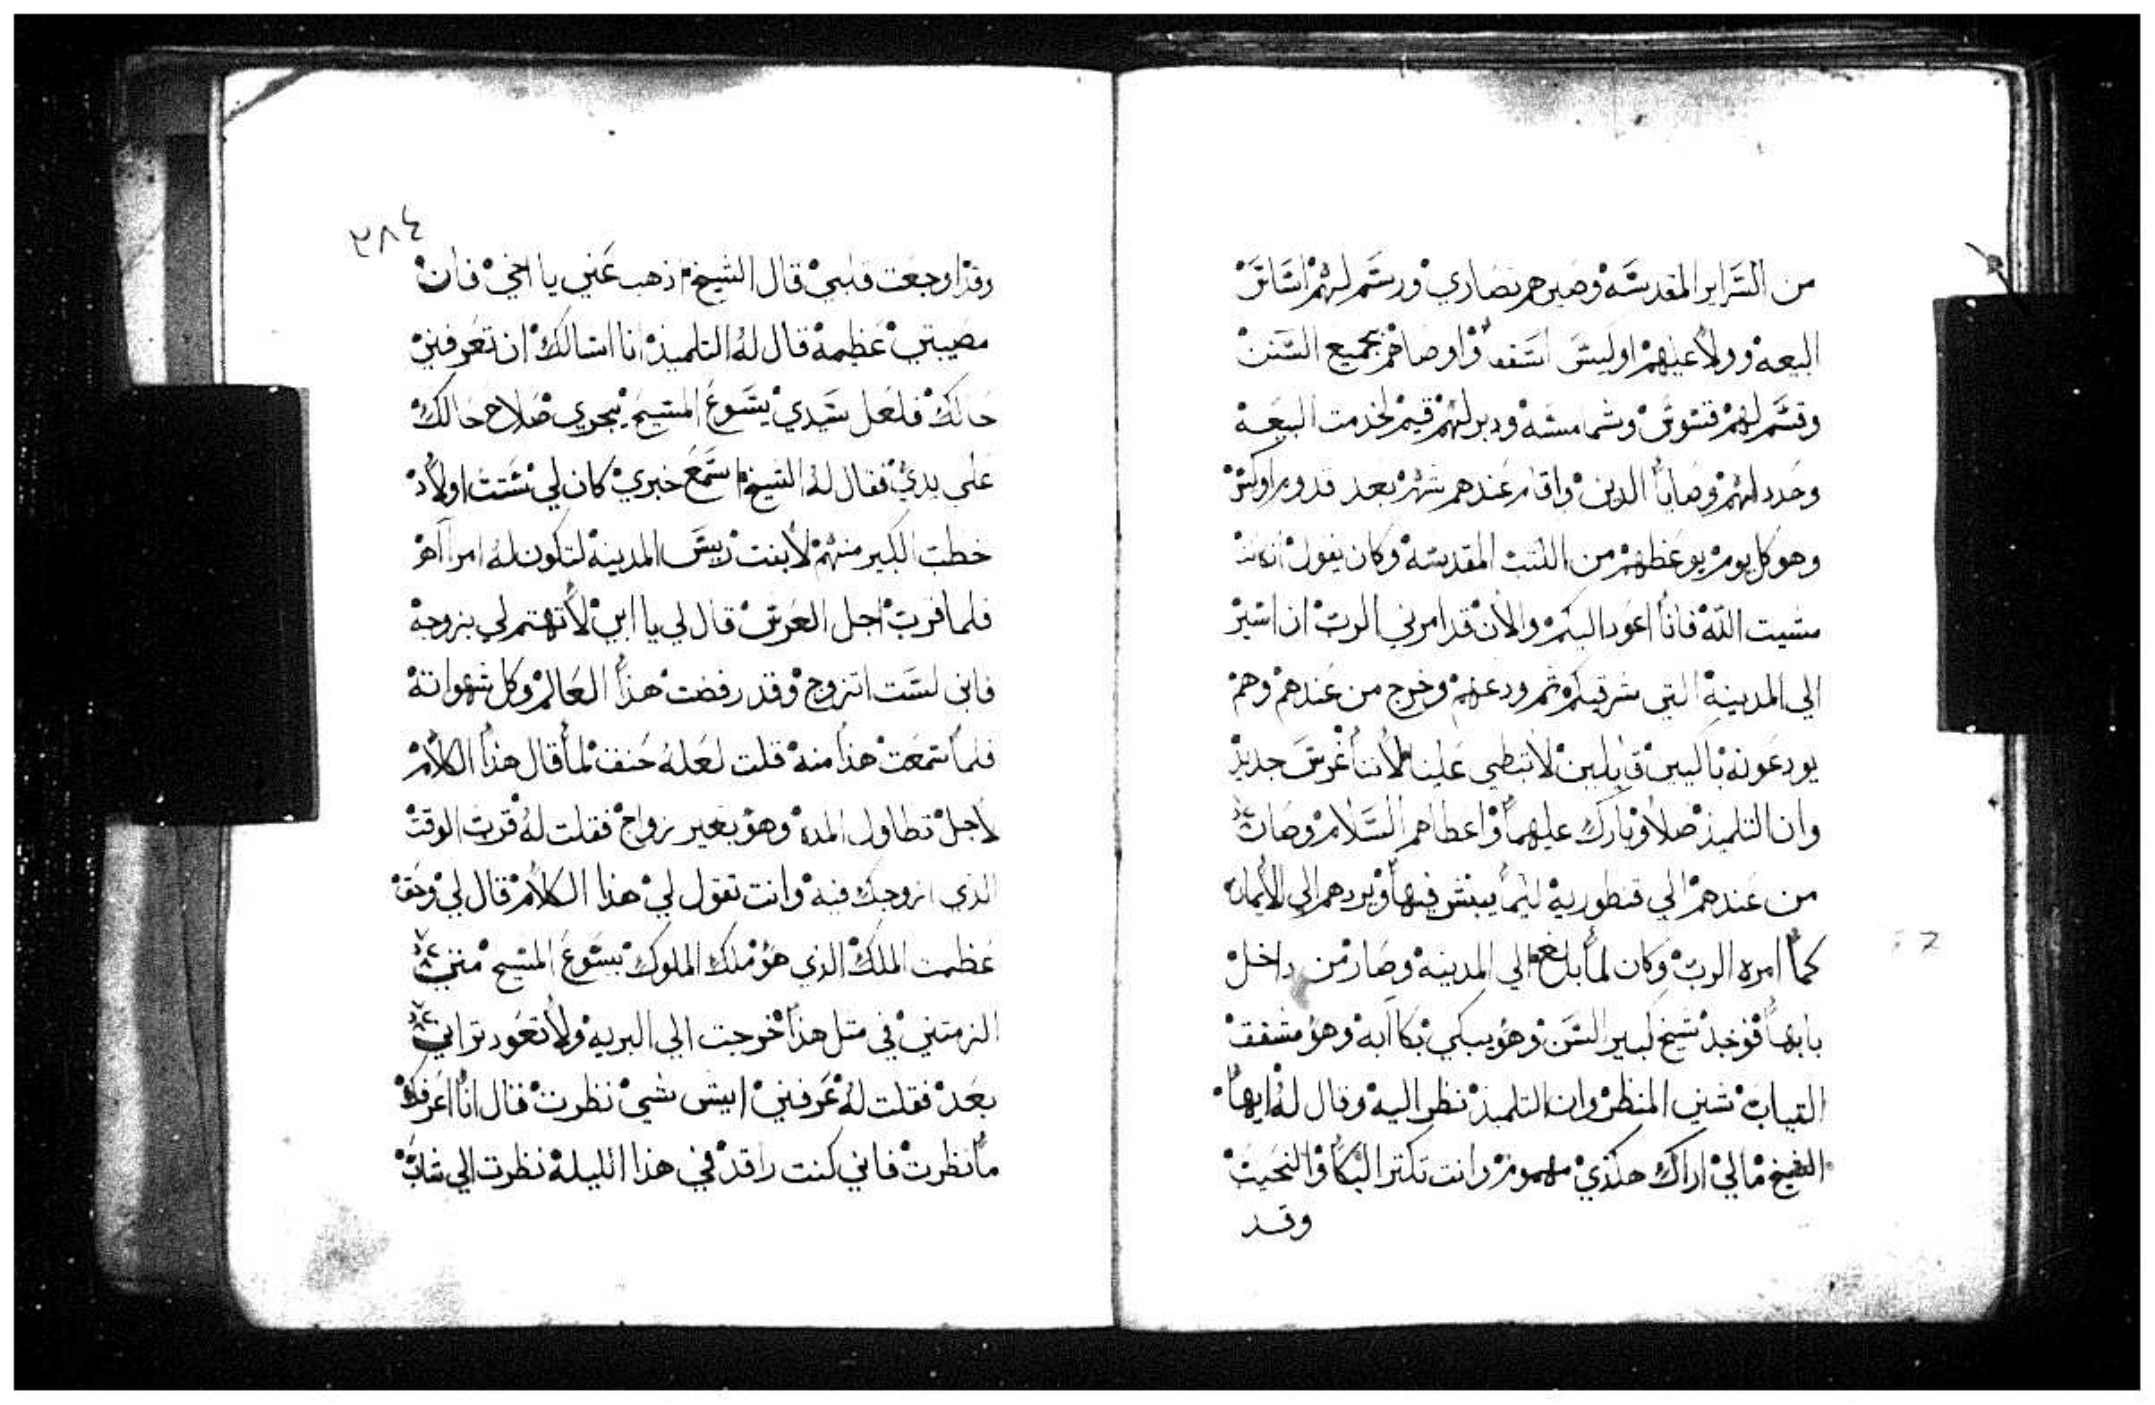 من السراير المقدسه وصيرهم نصاري ورسم لهم اساس
البيعه وولا عليهم اوليس اسقف واوصاهم بجميع السنن
وقسم لهم قسوس وشمامسه ودبر لهم قيم لخدمت البيعه
وحدد لهم وصايا الدين واقام عندهم شهر بعد قدوم اوليس
وهو كل يوم يوعظهم من الكتب المقدسه وكان يقول ان كانت
مشيت الله فانا اعود اليكم والان قد امرني الرب ان اسير
الي المدينه التي شرقيكم ثم ودعهم وخرج من عندهم وهم
يودعونه باكيين قايلين لا تبطي علينا لاننا غرس جديد
وان التلميذ صلا وبارك عليهم واعطاهم السلام وصار
من عندهم الي قنطوريه ليما يبشر فيها ويردهم الي الايمان
كما امره الرب وكان لما بلغ الي المدينه وصار من داخل
بابها فوجد شيخ كبير السن وهو يبكي بكاابه وهو مشقق
التياب شنيع المنظر وان التلميذ نظر اليه وقال له ايها
الشيخ مالي اراك هكذي مهموم وانت تكتر البكا والنحيب
وقد
٢٨٤
وقد اوجعت قلبي قال الشيخ اذهب عني يا اخي فان
مصيبتي عظيمه قال له التلميذ انا اسالك ان تعرفني
حالك فلعل سيدي يسوع المسيح يجري صلاح حالك
علي يدي فقال له الشيخ اسمع خبري كان لي ستت اولاد
خطبت الكبير منهم لابنت ريس المدينه لتكون له امراه
فلما قرب اجل العرس قال لي يا ابي لا تهتم لي بزوجه
فاني لست اتزوج وقد رفضت هذا العالم وكل شهواته
فلما سمعت هذا منه قلت لعله حنق لما قال هذا الكلام
لاجل تطاول المده وهو بغير زواج فقلت له قرب الوقت
الذي ازوجك فيه وانت تقول لي هذا الكلام قال لي وحق
عظمت الملك الذي هو ملك الملوك يسوع المسيح متي
الزمتني في متل هذا خرجت الي البريه ولا تعود تراني
بعد فقلت له عرفني ايش شي نظرت قال انا اعرفك
ما نظرت فاني كنت راقد في هذا الليله نظرت الي شاب